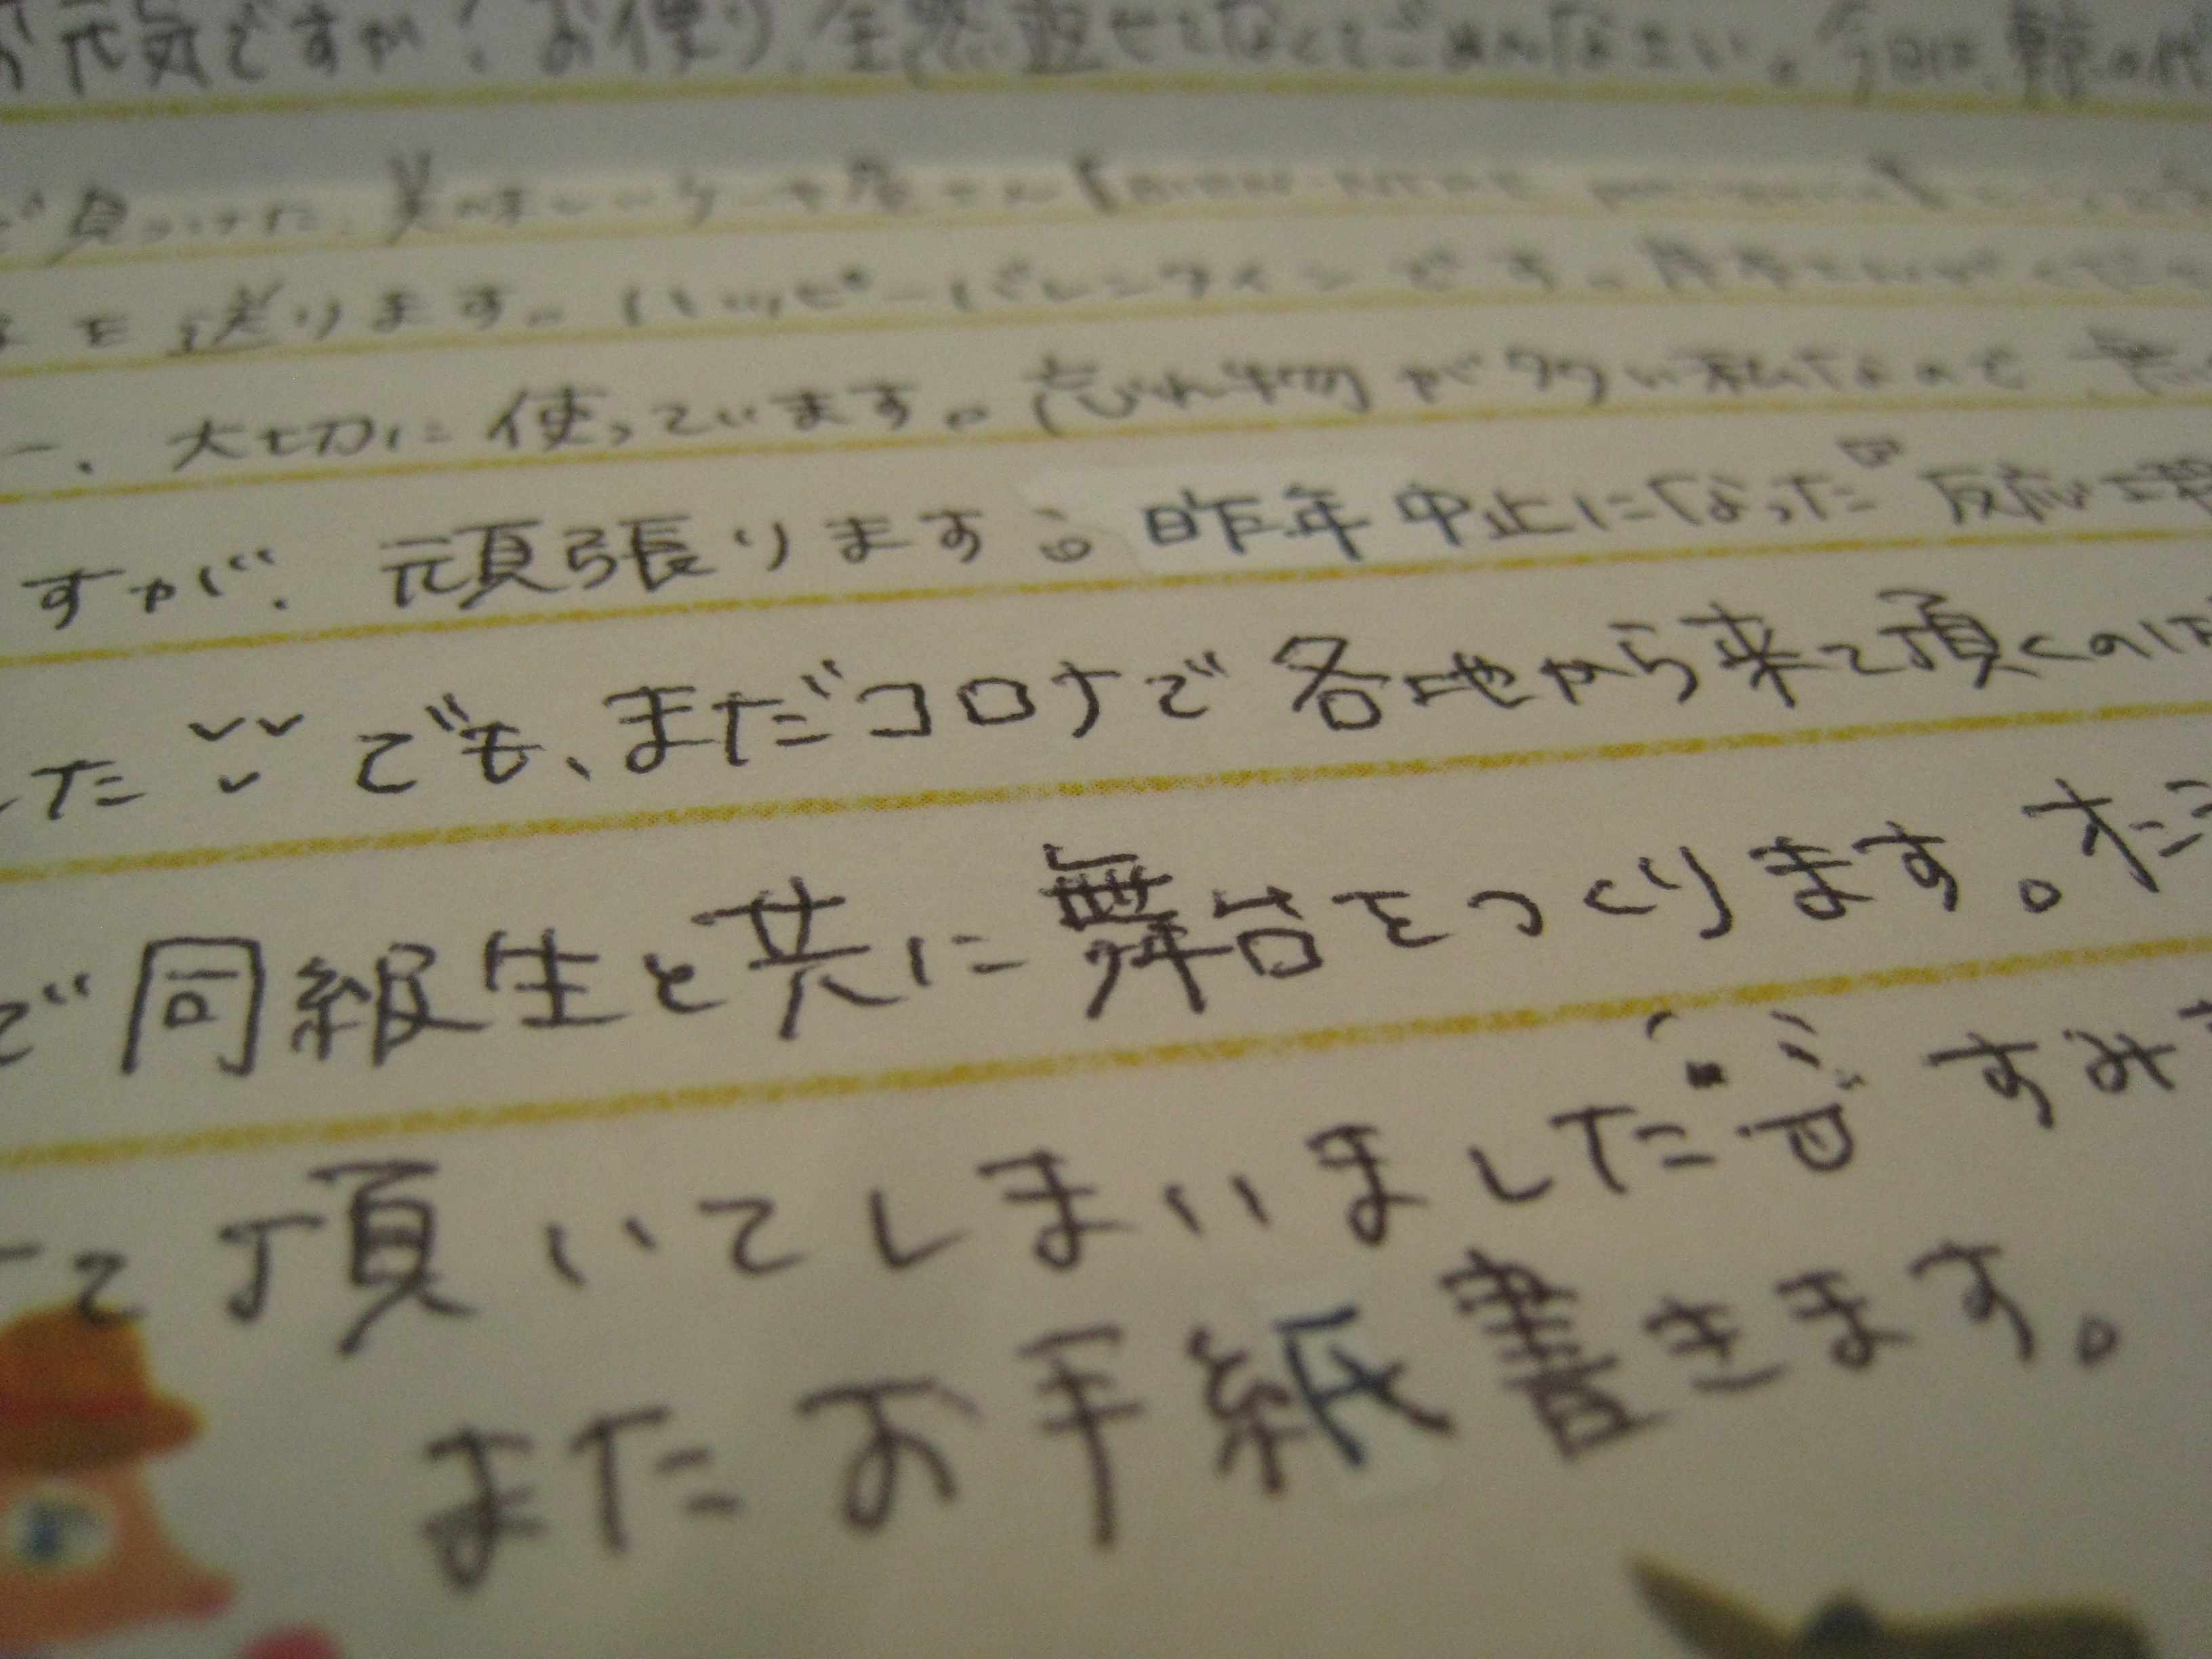 お元気ですか？お便り、全然返せてなくてごめんなさい。今日は、
で見つけた、美味しいケーキ屋さん
を送ります。ハッピーバレンタインです。
ー、大切に使っています。忘れ物が多い私なので
すが、頑張ります。昨年中止になった『反応工程
した でも、まだコロナで各地から来て頂くのは
で同級生と共に舞台をつくります。
て頂いてしまいました すみ
またお手紙書きます。